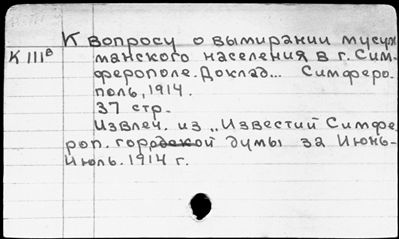 К вопросу о вымирании мусуль
К IIIв манского населения в г. Сим-
ферополе. Доклад... Симферо.
поль, 1914.
37 стр.
Извлеч. из „Известий Симфе
роп. городской думы за Июнь-
Июль. 1914 г.